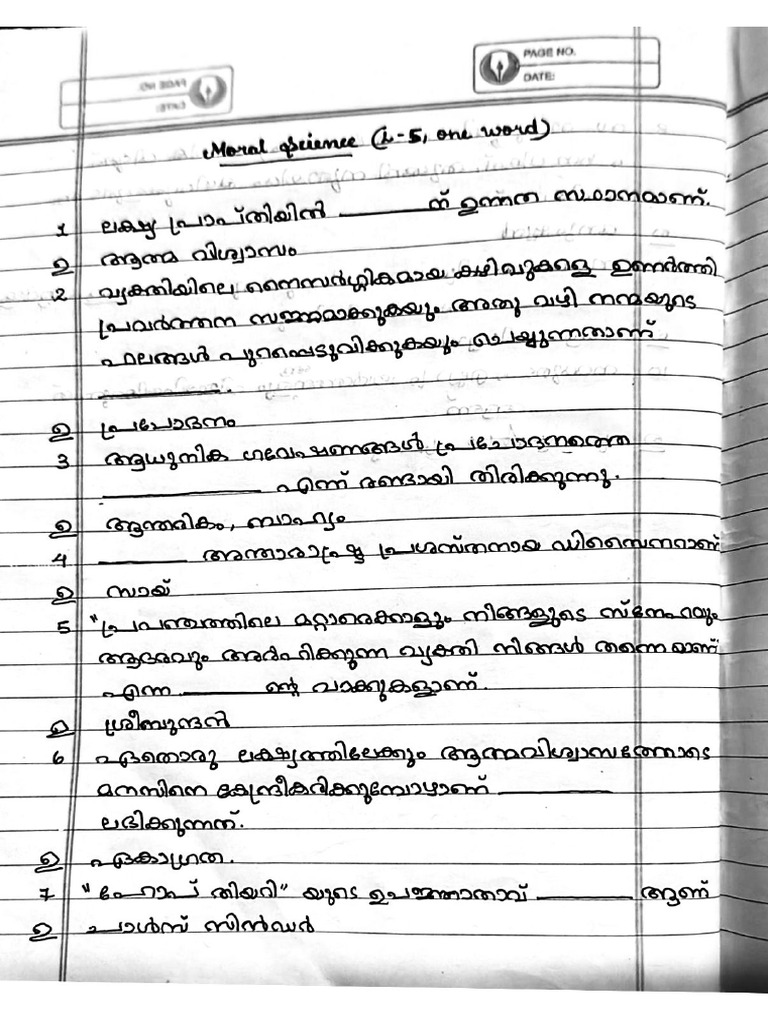 PAGE NO.
DATE:
Moral Science (1-5, one word)
1 ലക്ഷ്യ പ്രാപ്തിയിൽ ______ ന് ഉന്നത സ്ഥാനമാണ്.
ഉ ആത്മ വിശ്വാസം
2 വ്യക്തിയിലെ നൈസർഗ്ഗികമായ കഴിവുകളെ ഉണർത്തി
പ്രവർത്തന സജ്ജമാക്കുകയും അതു വഴി നന്മയുടെ
ഫലങ്ങൾ പുറപ്പെടുവിക്കുകയും ചെയ്യുന്നതാണ്
______.
ഉ പ്രചോദനം
3 ആധുനിക ഗവേഷണങ്ങൾ പ്രചോദനത്തെ
______ എന്ന് രണ്ടായി തിരിക്കുന്നു.
ഉ ആന്തരികം, ബാഹ്യം
4 ______ അന്താരാഷ്ട്ര പ്രശസ്തനായ ഡിസൈനറാണ്
ഉ സായ്
5 "പ്രപഞ്ചത്തിലെ മറ്റാരെക്കാളും നിങ്ങളുടെ സ്നേഹവും
ആദരവും അർഹിക്കുന്ന വ്യക്തി നിങ്ങൾ തന്നെയാണ്
എന്ന ______ ന്റെ വാക്കുകളാണ്.
ഉ ശ്രീബുദ്ധൻ
6 ഏതൊരു ലക്ഷ്യത്തിലേക്കും ആത്മവിശ്വാസത്തോടെ
മനസിനെ കേന്ദ്രീകരിക്കുമ്പോഴാണ് ______
ലഭിക്കുന്നത്.
ഉ ഏകാഗ്രത.
7 "ഹോപ് തിയറി" യുടെ ഉപജ്ഞാതാവ് ______ ആണ്
ഉ ചാൾസ് സിൻഡർ